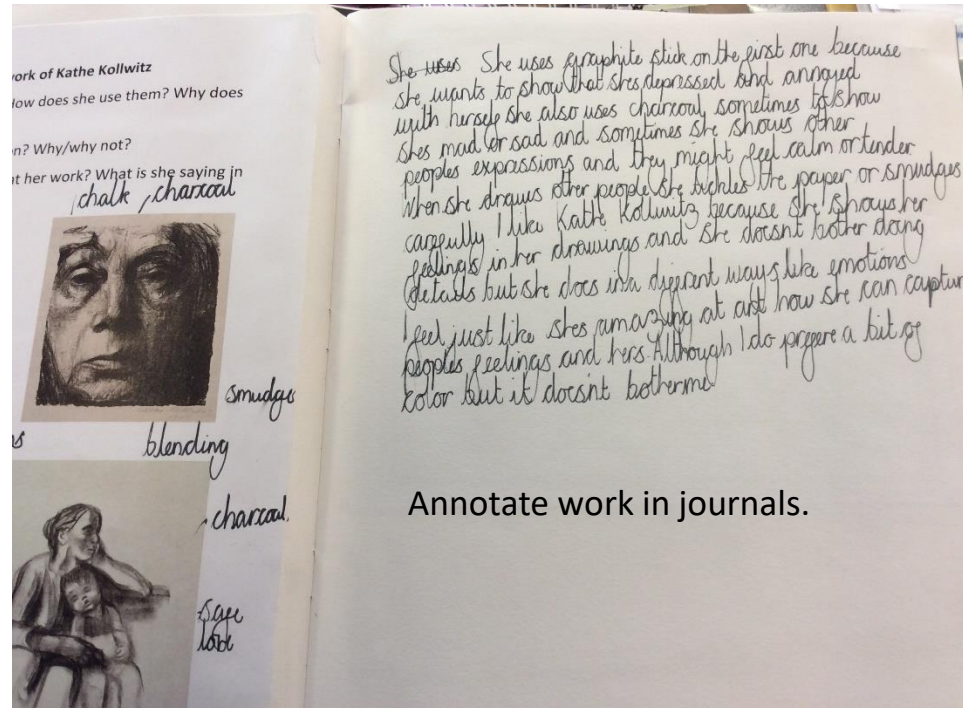 ork of Kathe Kollwitz
How does she use them? Why does
n? Why/why not?
t her work? What is she saying in
chalk, charcoal
smudge
blending
charcoal.
safe
love
She uses She uses graphite stick on the first one because
she wants to show that shes depressed and annoyed
with herself she also uses charcoal sometimes to show
shes mad or sad and sometimes she shows other
peoples expressions and they might feel calm or tender
When she draws other people she tickles the paper or smudges
carefully I like Kathe Kollwitz because she shows her
feelings in her drawings and she doesnt bother doing
details but she does in a different ways like emotions
I feel just like shes amazing at art how she can captur
peoples feelings and hers. Although I do prefere a bit of
color but it doesnt bother me
Annotate work in journals.